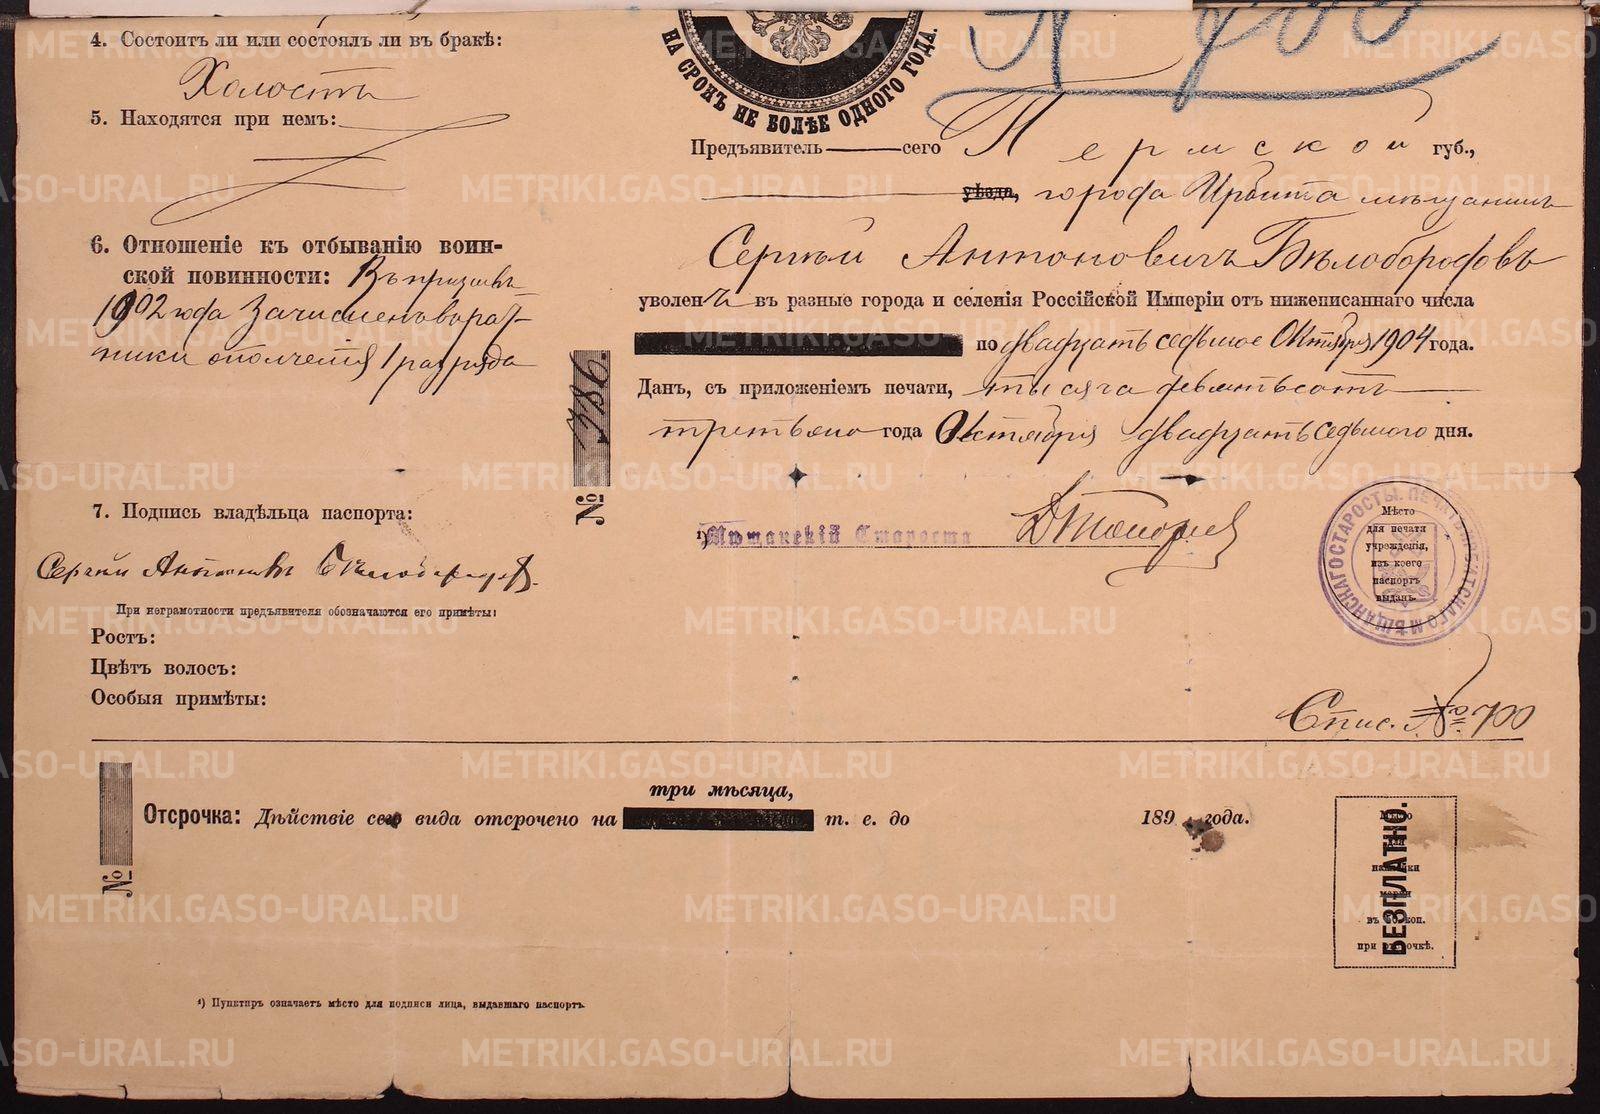 4. Состоитъ ли или состоялъ ли въ бракѣ:
Холостъ
5. Находятся при немъ:
6. Отношеніе къ отбыванію воин-
ской повинности: Въ призывъ
1902 года Зачисленъ в рат-
ники ополченія 1 разряда
7. Подпись владѣльца паспорта:
Сергѣй Антоновъ Бѣлобородовъ.
При неграмотности предъявителя обозначаются его примѣты:
Ростъ:
Цвѣтъ волосъ:
Особыя примѣты:
№ 386.
НА СРОКЪ НЕ БОЛѢЕ ОДНОГО ГОДА.
Предъявитель сего Пермской губ.,
уѣзда, города Ирбита мѣщанинъ
Сергѣй Антоновичъ Бѣлобородовъ
уволенъ въ разные города и селенія Россійской Имперіи отъ нижеписаннаго числа
по двадцать седьмое Октября 1904 года.
Данъ, съ приложеніемъ печати, тысяча девятьсотъ
третьяго года Октября двадцать седьмого дня.
¹) Мѣщанскій Староста
ПЕЧАТЬ ИРБИТСКАГО МѢЩАНСКАГО СТАРОСТЫ.
Мѣсто
для печати
учрежденія,
изъ коего
паспортъ
выданъ.
Спис. № 700
Отсрочка: Дѣйствіе сего вида отсрочено на три мѣсяца, т. е. до 189 года.
№
БЕЗПЛАТНО.
Мѣсто
для
наклейки
марки
въ 50 коп.
при отсрочкѣ.
¹) Пунктиръ означаетъ мѣсто для подписи лица, выдавшаго паспортъ.
METRIKI.GASO-URAL.RU